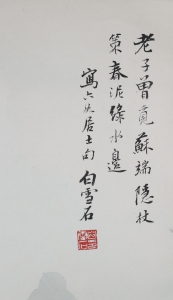 老子曾覓蘇端隱杖
策春泥綠水邊
寫六如居士句 白雪石